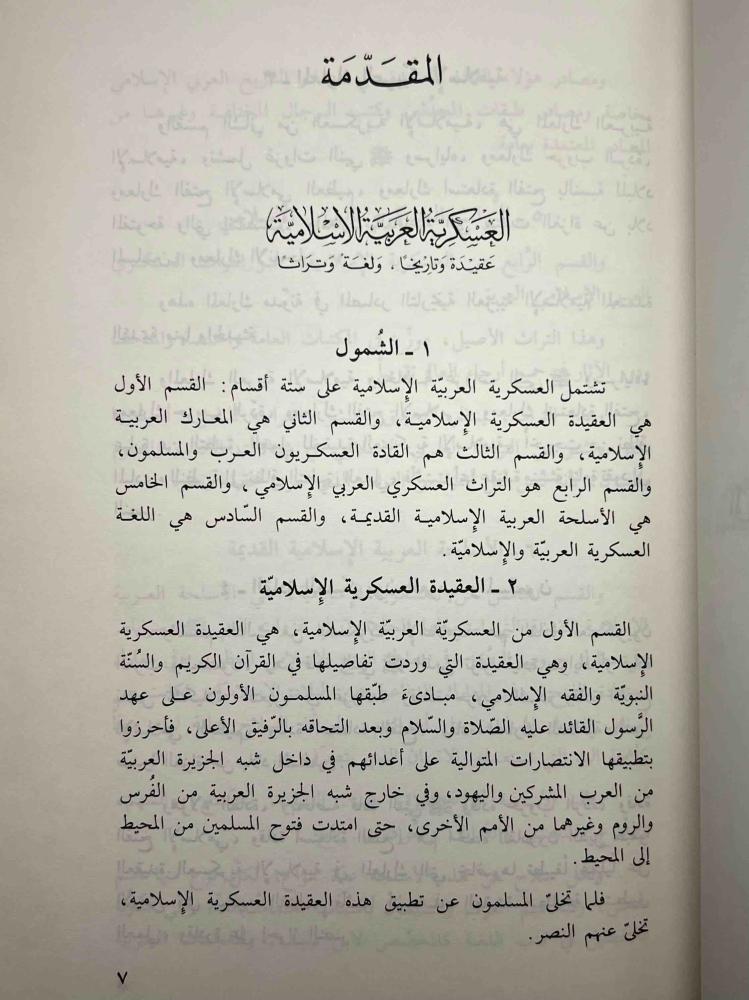 المقدّمة
العسكريّة العربيّة الإسلاميّة
عقيدة وتاريخًا، ولغة وتراثًا
١ ـ الشُمول
تشتمل العسكرية العربيّة الإسلامية على ستة أقسام: القسم الأول
هي العقيدة العسكرية الإسلاميـة، والقسم الثاني هي المعارك العربيـة
الإسلامية، والقسم الثالث هم القادة العسكـريون العرب والمسلمون،
والقسم الرابع هو التراث العسكري العربي الإسلامي، والقسم الخامس
هي الأسلحة العربية الإسلاميـة القديمـة، والقسم السّادس هي اللغـة
العسكرية العربيّة والإسلاميّة.
٢ ـ العقيدة العسكرية الإسلاميّة
القسم الأول من العسكريّة العربيّة الإسلامية، هي العقيدة العسكرية
الإسلامية، وهي العقيدة التي وردت تفاصيلها في القرآن الكريم والسُنّة
النبويّة والفقه الإسلامي، مبـادىءَ طبّقها المسلمـون الأولون عـلى عهد
الرَّسول القائد عليه الصّلاة والسّلام وبعد التحاقه بالرّفيق الأعلى، فأحرزوا
بتطبيقها الانتصارات المتوالية على أعدائهم في داخل شبه الجزيرة العربيّة
من العرب المشركين واليهود، وفي خارج شبه الجزيرة العربية من الفُرس
والروم وغيرهما من الأمم الأخرى، حتى امتدت فتوح المسلمين من المحيط
إلى المحيط.
فلما تخلىّ المسلمون عن تطبيق هذه العقيدة العسكرية الإسلامية،
تخلىّ عنهم النصر.
٧